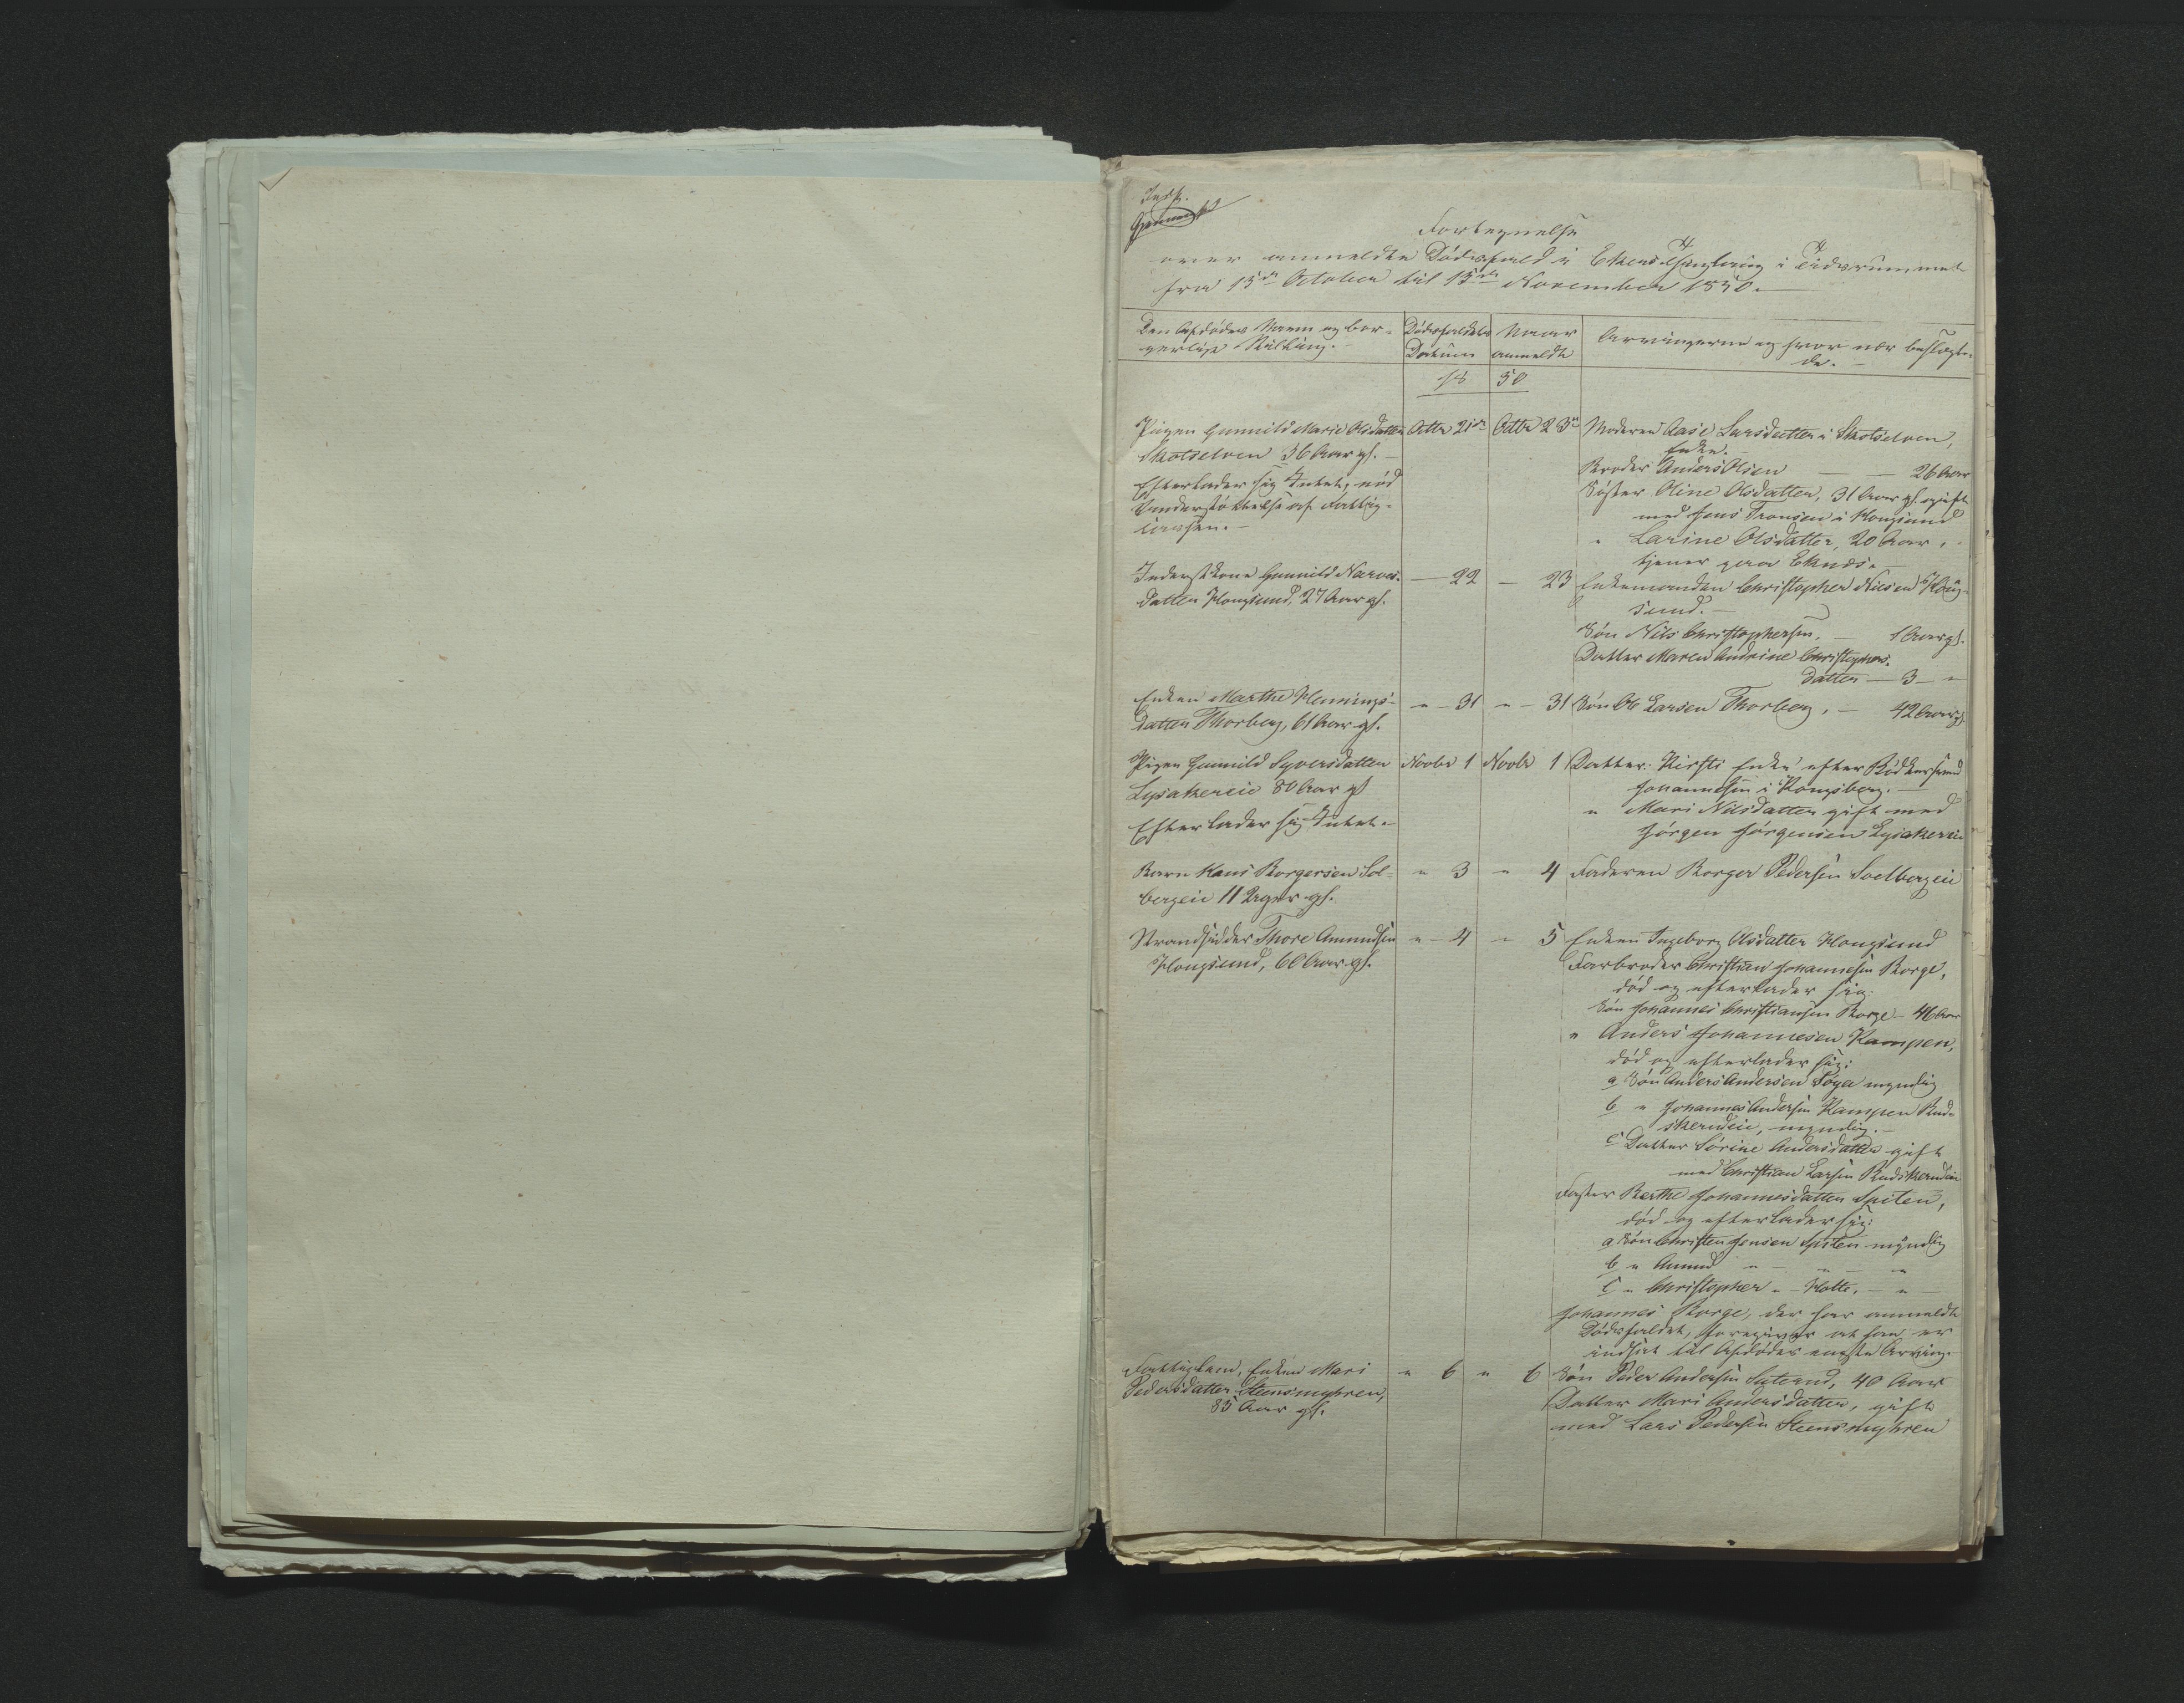 Indf.
Fortegnelse
over anmeldte Dødsfald i Ekers Thinglaug i Tidsrummet
fra 15de October til 15de November 1850.
Den Afdødes Navn og bor-
gerlige Stilling.
Dødsfaldets
Datum
Naar
anmeldt
Arvingerne og hvor nær beslægte-
de.
18 50
Pigen Gunnild Marie Olsdatter
Skotselven 36 Aar gl.
Octbr 21de
Octbr 23de
Moderen Aase Larsdatter i Skotselven,
Enke.
Efterlader sig Intet, nød
Understøttelse af Fattig-
cassen.
Broder Anders Olsen — — 26 Aar
Søster Oline Olsdatter, 31 Aar gl. gift
med Jens Tronsen i Hougsund
" Larine Olsdatter, 20 Aar,
tjener paa Eknæs.
Inderstkone Gunnild Narves-
datter Hougsund, 27 Aar gl.
— 22
— 23
Enkemanden Christopher Nilsen Houg-
sund.
Søn Nils Christophersen, — 1 Aar gl.
Datter Maren Andrine Christophers-
datter — 3 — "
Enken Marthe Flemmings-
datter Thorberg, 61 Aar gl.
" — 31
" — 31
Søn Ole Larsen Thorberg, — 42 Aar gl
Pigen Gunnild Syversdatter
Lysakereie 80 Aar gl
Efterlader sig Intet.
Novbr 1
Novbr 1
Datter: Kirsti Enke efter Bødkersvend
Johannesen i Kongsberg.
" Mari Nilsdatter gift med
Jørgen Jørgensen Lysakereie
Barn Hans Borgersen Sol-
bergeie 11 Uger gl.
" 3
" 4
Faderen Borger Pedersen Soelbergeie
Strandsidder Thore Amundsen
Hougsund, 60 Aar gl.
" — 4
" 5
Enken Ingeborg Olsdatter Hougsund
Farbroder Christian Johannesen Borge,
død og efterlader sig:
Søn Johannes Christiansen Borge — 46 Aar
" Anders Johannesen Kampen,
død og efterlader sig:
a Søn Anders Andersen myndig
b " Johannes Andersen Kampen Rud-
skerudeie, myndig.
c Datter Sørine Andersdatter gift
med Christian Larsen Rudskerudeie
Faster Berthe Johannesdatter Spiten,
død og efterlader sig:
a Søn Christen Jensen Spiten myndig
b " Amund " — " — "
c " Christopher " — Holte, — " —
Johannes Borge, der har anmeldt
Dødsfaldet, foregiver at han er
indsat til Afdødes eneste Arving.
Fattiglem, Enken Mari
Pedersdatter Steensmyhren,
85 Aar gl.
" 6
" 6
Søn Peder Andersen 40 Aar
Datter Mari Andersdatter, gift
med Lars Pedersen Steensmyhren